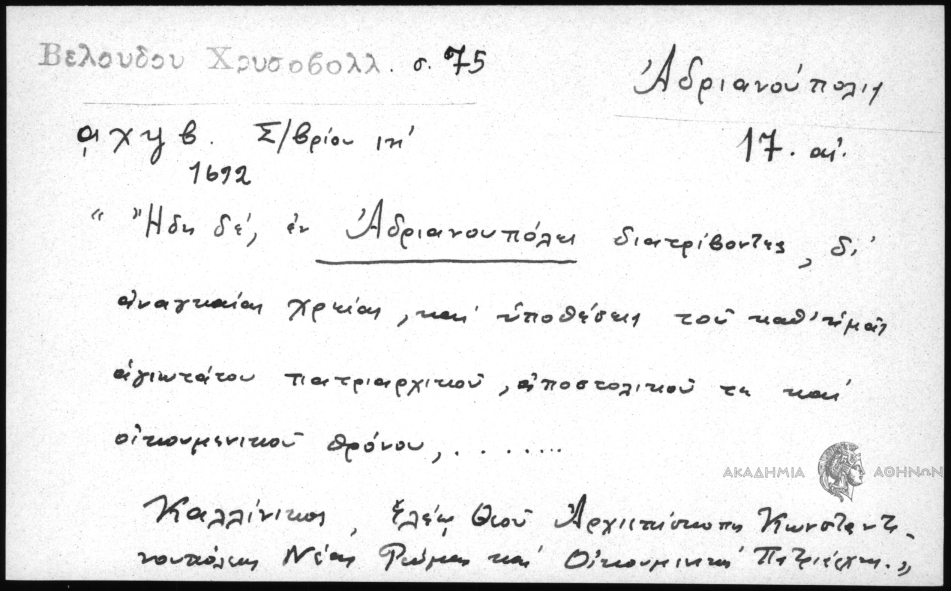 Βελουδου Χρυσοβολλ. σ. 75
Ἀδριανούπολις
17. αἰ.
͵αχϟβ. Σ/βρίου ιη´
1692
“ Ἤδη δέ, ἐν Ἀδριανουπόλει διατρίβοντες, δι᾽
ἀναγκαίας χρείας, καί ὑποθέσεις τοῦ καθ᾽ ἡμᾶς
ἁγιωτάτου πατριαρχικοῦ, ἀποστολικοῦ τε καί
οἰκουμενικοῦ θρόνου, . . . . . . .
ΑΚΑΔΗΜΙΑ ΑΘΗΝΩΝ
Καλλίνικος, Ἐλέῳ Θεοῦ Ἀρχιεπίσκοπος Κωνσταντι-
νουπόλεως Νέας Ρώμης καί Οἰκουμενικός Πατριάρχης.„